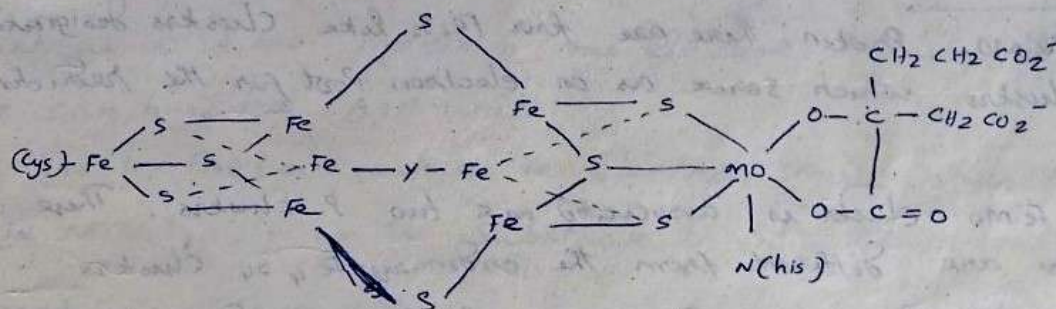 S
CH2 CH2 CO2⁻
Fe S O - C - CH2 CO2⁻
S Fe
(Cys) - Fe S Fe - Y - Fe S mo
S Fe Fe S O - C = O
N (his)
S